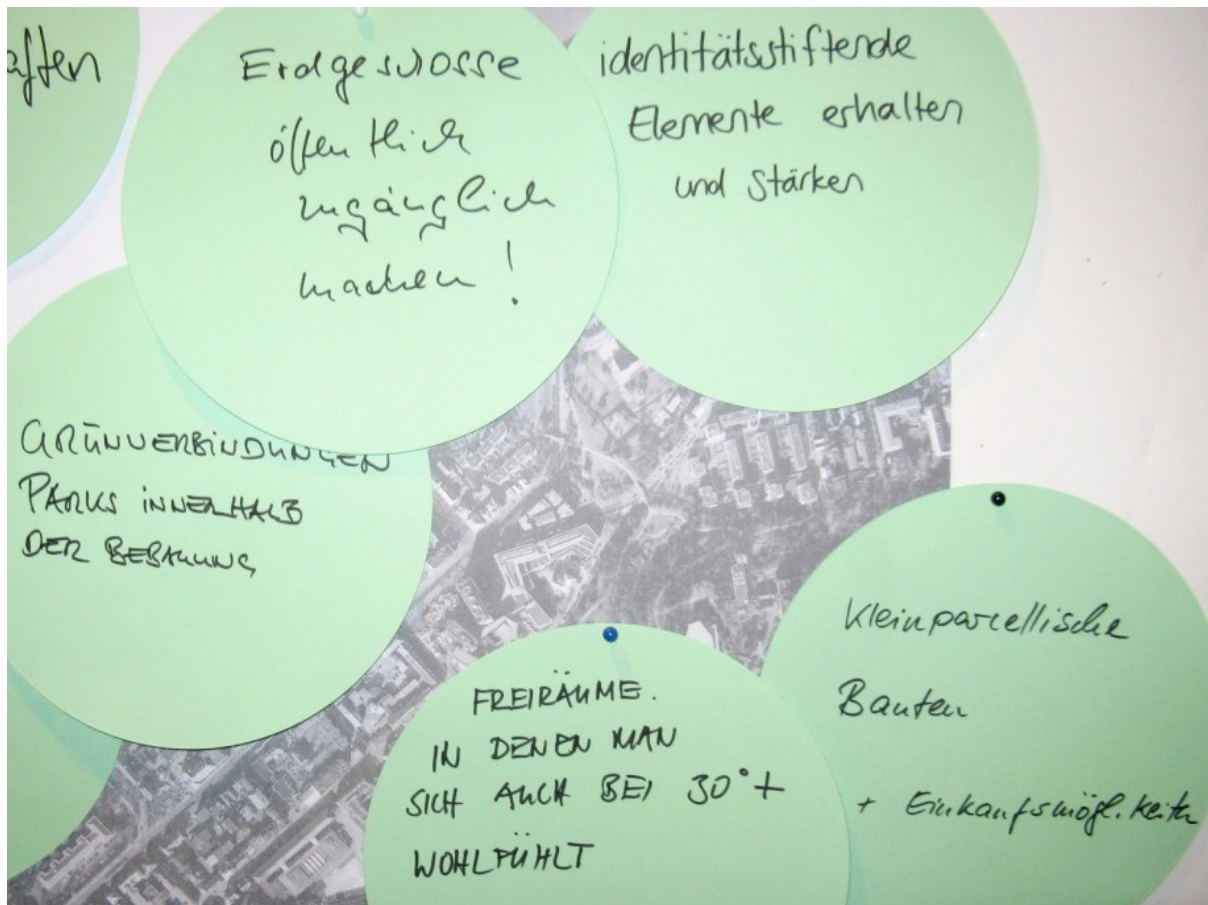 aften
Erdgeschosse
öffentlich
zugänglich
machen!
identitätsstiftende
Elemente erhalten
und stärken
GRÜNVERBINDUNGEN
PARKS INNERHALB
DER BEBAUUNG
FREIRÄUME.
IN DENEN MAN
SICH AUCH BEI 30°+
WOHLFÜHLT
Kleinparcellische
Bauten
+ Einkaufsmögl.keiten